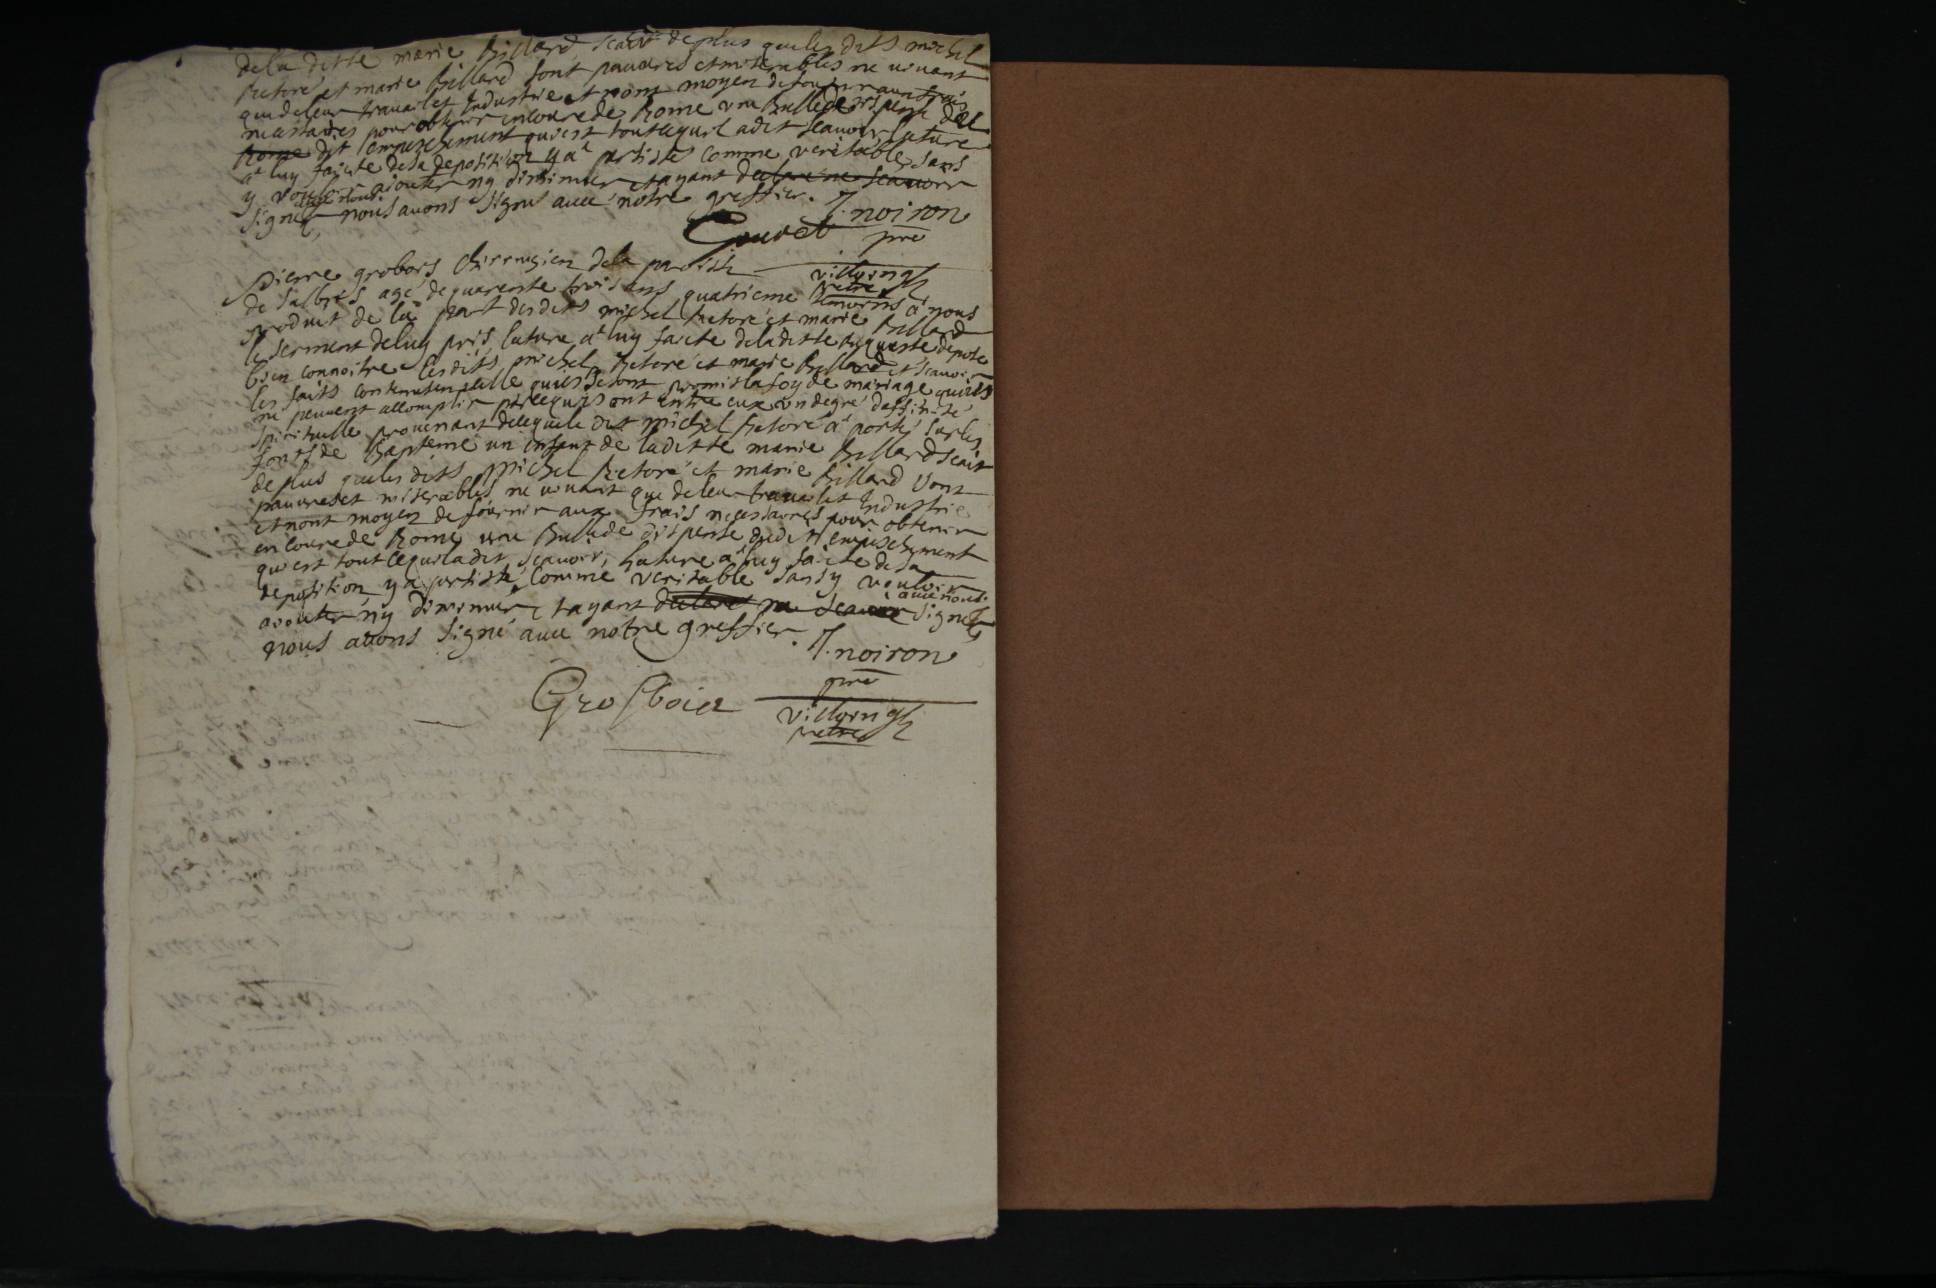 de la ditte marie Billard scait de plus que les dits michel
Betoré et marie Billard sont pauvres et miserables ne vivant
que de leur travail et Industrie et n'ont moyen de fournir aux frais
necessaires pour obtenir en cour de Rome une Bulle de dispense de
Rome dit empeschement qui est tout ce qu'il a dit scavoir, lature
a luy faicte de sa deposition y a persisté comme veritable sans
y vouloir ajouter ny diminuer et ayant declaré ne scavoir
avec nous
signé, nous avons signé avec notre greffier. J. noiron
Gouret pre
villoingt
pretre
Pierre grobois Chirrugien de la paroisse
de Salbris agé de quarente trois ans quatrieme temoins a nous
produit de la part des dits michel Betoré et marie Billard
le serment de luy pris, lature a luy faicte de la ditte Requeste depose
bien connoitre les dits michel Betoré et marie Billard et scavoir
les faits contenus en icelle qui se sont promis la foy de mariage qu'ils
ne peuvent accomplir parce qu'ils ont entre eux un degré daffinité
spirituelle provenant de ce que le dit michel Betoré a porté sur les
fonts de Bapteme un enfant de la ditte marie Billard scait
de plus que les dits michel Betoré et marie Billard sont
pauvres et miserables ne vivant que de leur travail et Industrie
et nont moyen de fournir aux frais necessaires pour obtenir
en cour de Rome une Bulle de dispense du dit empeschement
qui est tout ce qu'il a dit scavoir, lature a luy faicte de sa
deposition y a persisté comme veritable sans y vouloir
avec nous
ajouter ny diminuer et ayant declaré ne scavoir signé
nous avons signé avec notre greffier. J. noiron
pre
Grosbois
villoingt
pretre